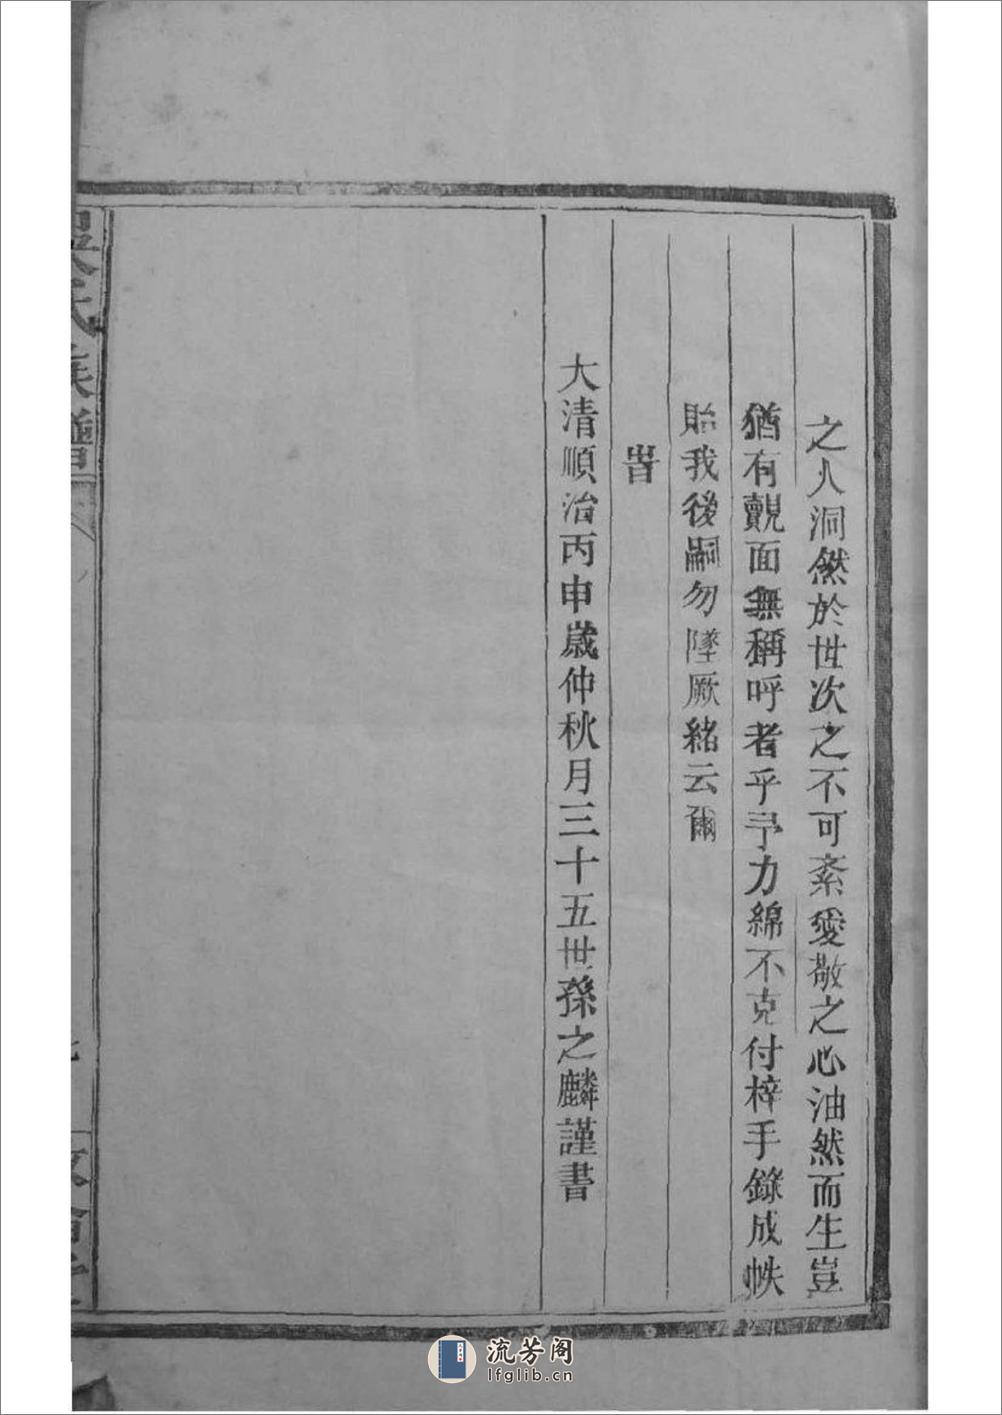 之人洞然於世次之不可紊愛敬之心油然而生豈
猶有覿面無稱呼者乎予力綿不克付梓手錄成帙
貽我後嗣勿墜厥緒云爾
旹
大清順治丙申歲仲秋月三十五世孫之麟謹書
氏族譜
流芳阁
lfglib.cn